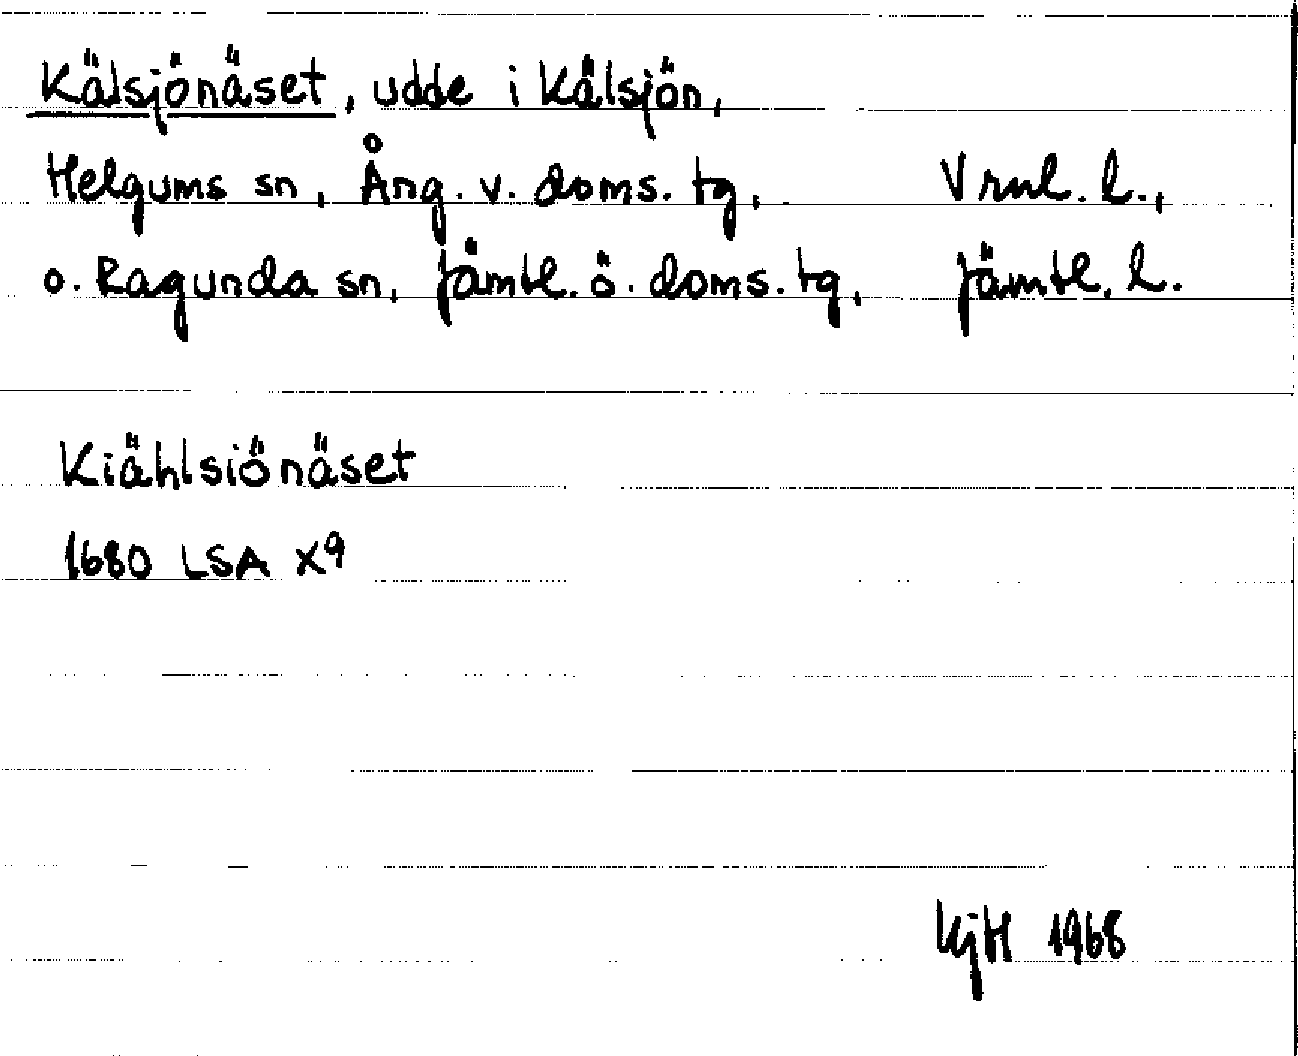 Kälsjönäset, udde i Kälsjön,
Helgums sn, Ång. v. doms. tg, Vrnl. l.,
o. Ragunda sn, Jämtl. ö. doms. tg, Jämtl. l.
Kiählsiönäset
1680 LSA X9
KjH 1968